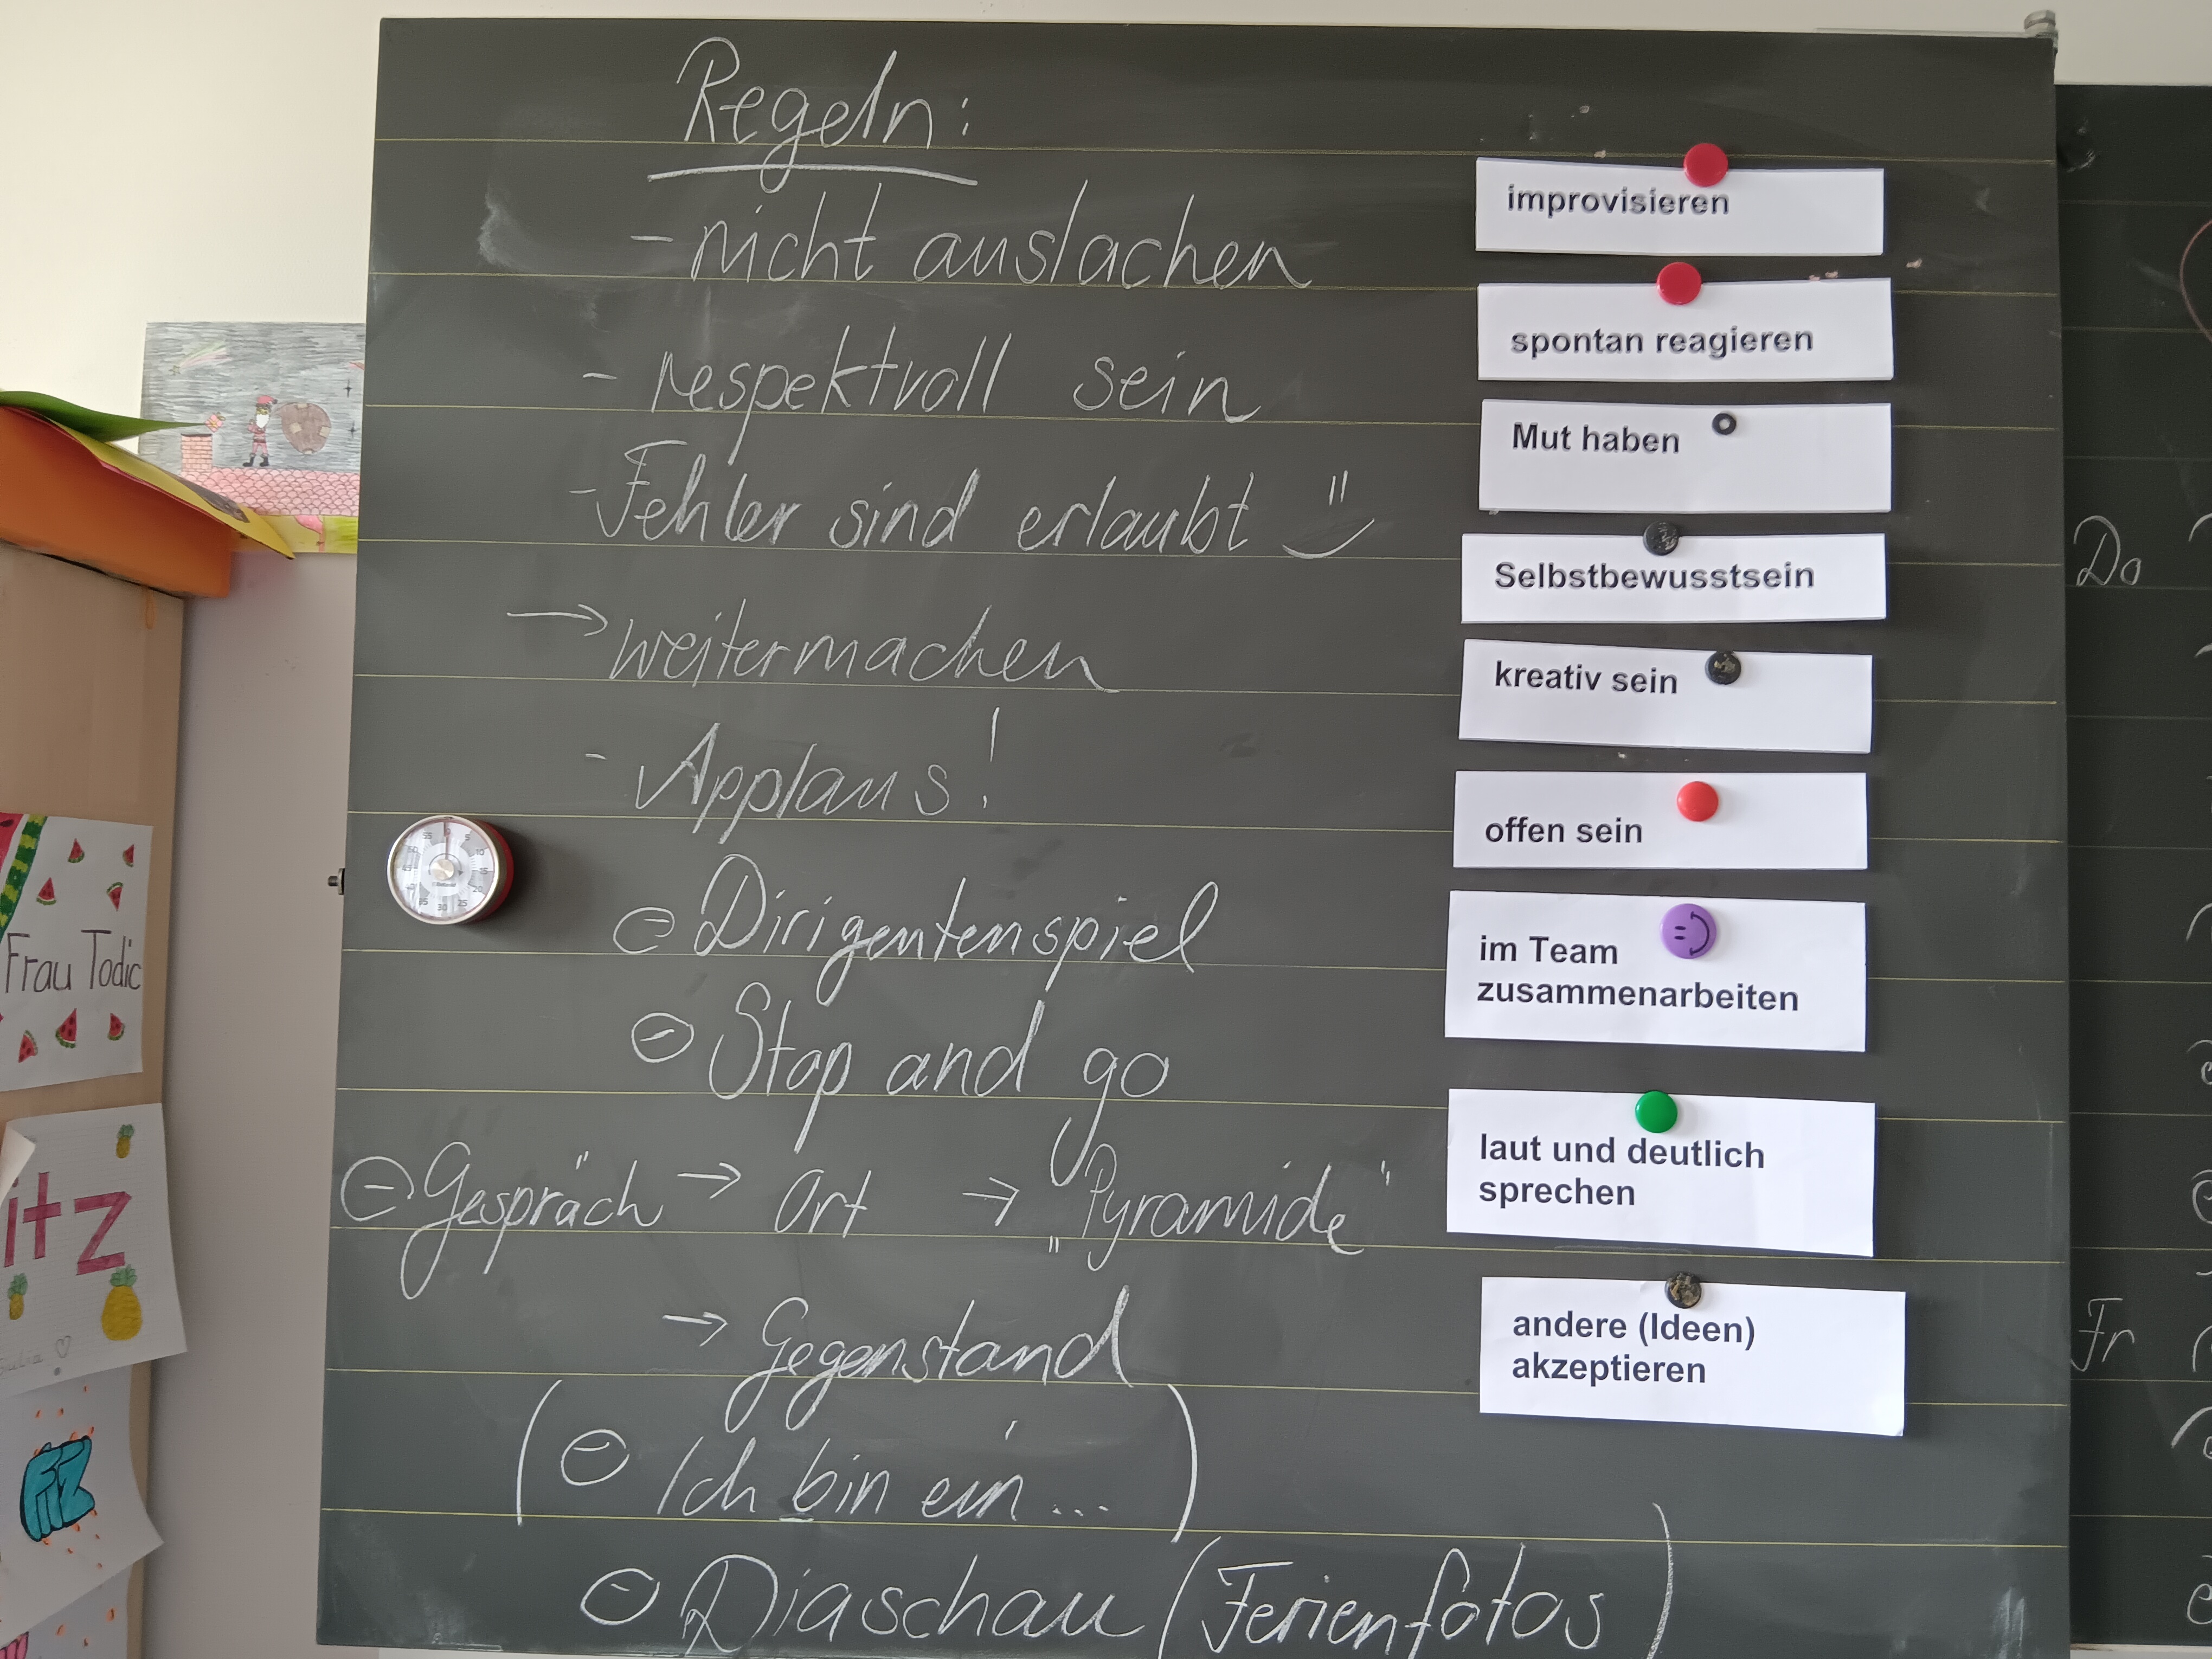 Regeln:
- nicht auslachen
- respektvoll sein
- Fehler sind erlaubt
→ weitermachen
- Applaus!
Dirigentenspiel
Stop and go
Gespräch → Ort → „Pyramide"
→ Gegenstand
( Ich bin ein ... )
Diaschau (Ferienfotos)
improvisieren
spontan reagieren
Mut haben
Selbstbewusstsein
kreativ sein
offen sein
im Team
zusammenarbeiten
laut und deutlich
sprechen
andere (Ideen)
akzeptieren
Frau Todic
itz
Do
Fr